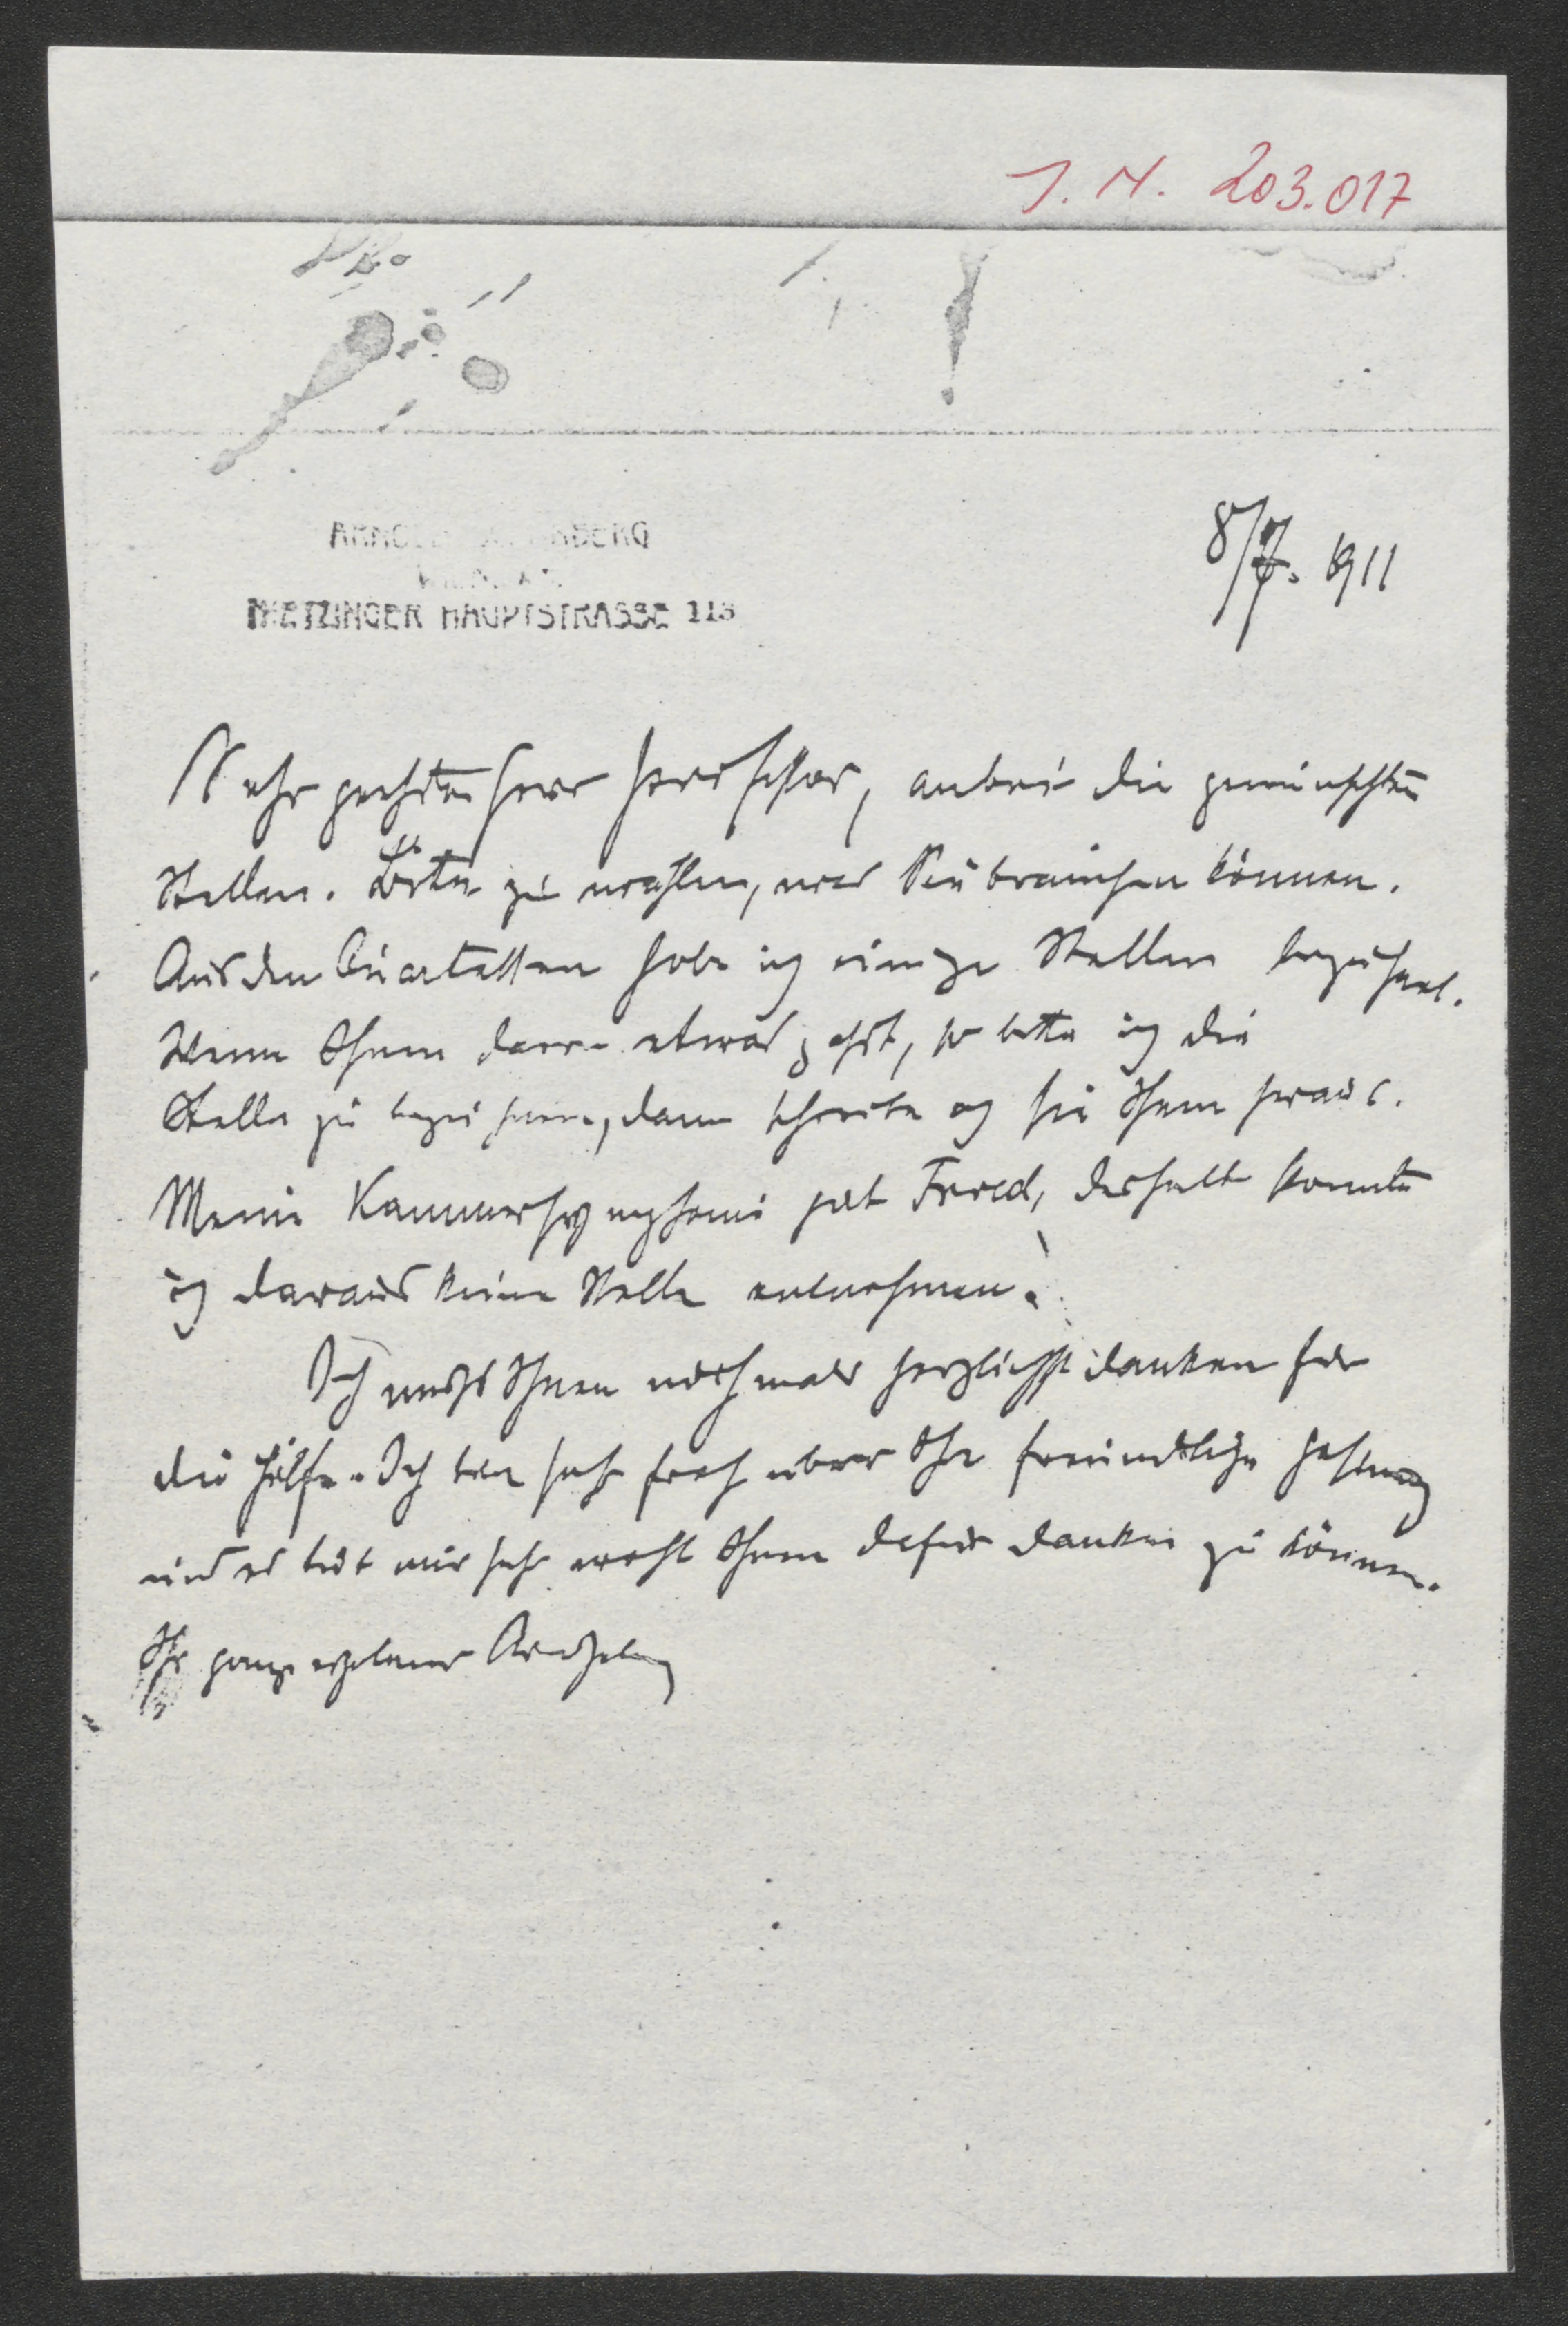 J. N. 203.017
8/7. 1911
HIETZINGER HAUPTSTRASSE 113
Sehr geehrter Herr Professor, anbei die gewünschten
Stellen. Bitte zu wählen, was Sie brauchen können.
Aus den Quartetten habe ich einige Stellen bezeichnet.
Wenn Ihnen davon etwas paßt, so bitte ich die
Stelle zu bezeichnen, dann schreibe ich sie Ihnen heraus.
Meine Kammersymphonie hat Fried, deshalb konnte
ich daraus keine Stelle entnehmen!
Ich muß Ihnen nochmals herzlichst danken für
die Hilfe. Ich bin sehr froh über Ihre freundliche Gesinnung
und es tut mir sehr wohl Ihnen dafür danken zu können.
Ihr ganz ergebener